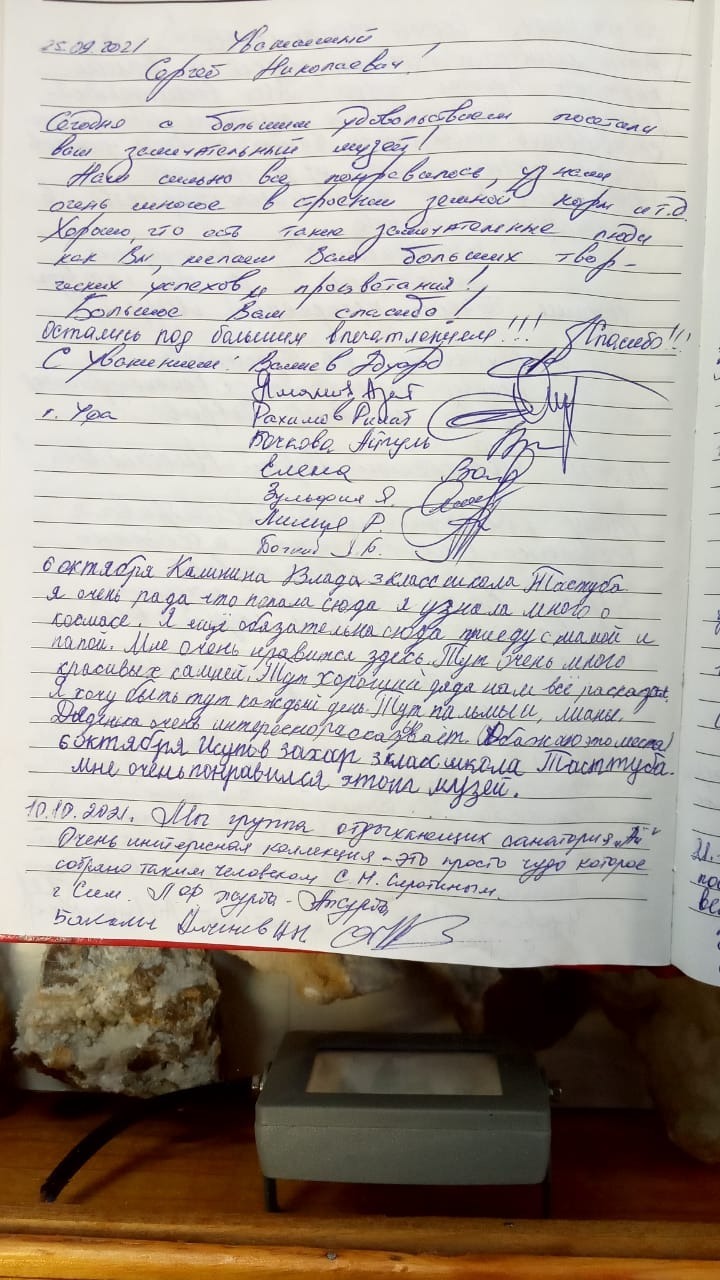 25.09.2021 Уважаемый
Сергей Николаевич!
Сегодня с большим удовольствием посетили
ваш замечательный музей!
Нам сильно все понравилось, узнали
очень многое в строении земной коры и т.д.
Хорошо, что есть такие замечательные люди
как Вы, желаем Вам больших твор-
ческих успехов и процветания!
Большое Вам спасибо!
Остались под большим впечатлением!!! Спасибо!!!
С Уважением: Валиев Эдуард
г. Уфа Рахимов Ринат
Бочкова Айгуль
Елена
Зульфия Я.
Р.
6 октября Калинина Влада 3 класс школа Тастуба
я очень рада что попала сюда я узнала много о
космасе. Я ещё обязательна сюда приеду с мамой и
папой. Мне очень нравится здесь. Тут очень много
красивых камней. Тут хороший дядя нам всё
Я хочу быть тут каждый день. Тут пальмы и, лианы.
Дяденька очень интересно рассказывает. Обажаю это места!
6 октября Исупов захар 3 класс школа Тасттуба.
мне очень понравился этопа музей.
10.10.2021. Мы группа отдыхающих санатория
Очень интересная коллекция - это просто чудо которое
собрано таким человеком С. Н. Сиротиным.
г Сим.
Бакалы